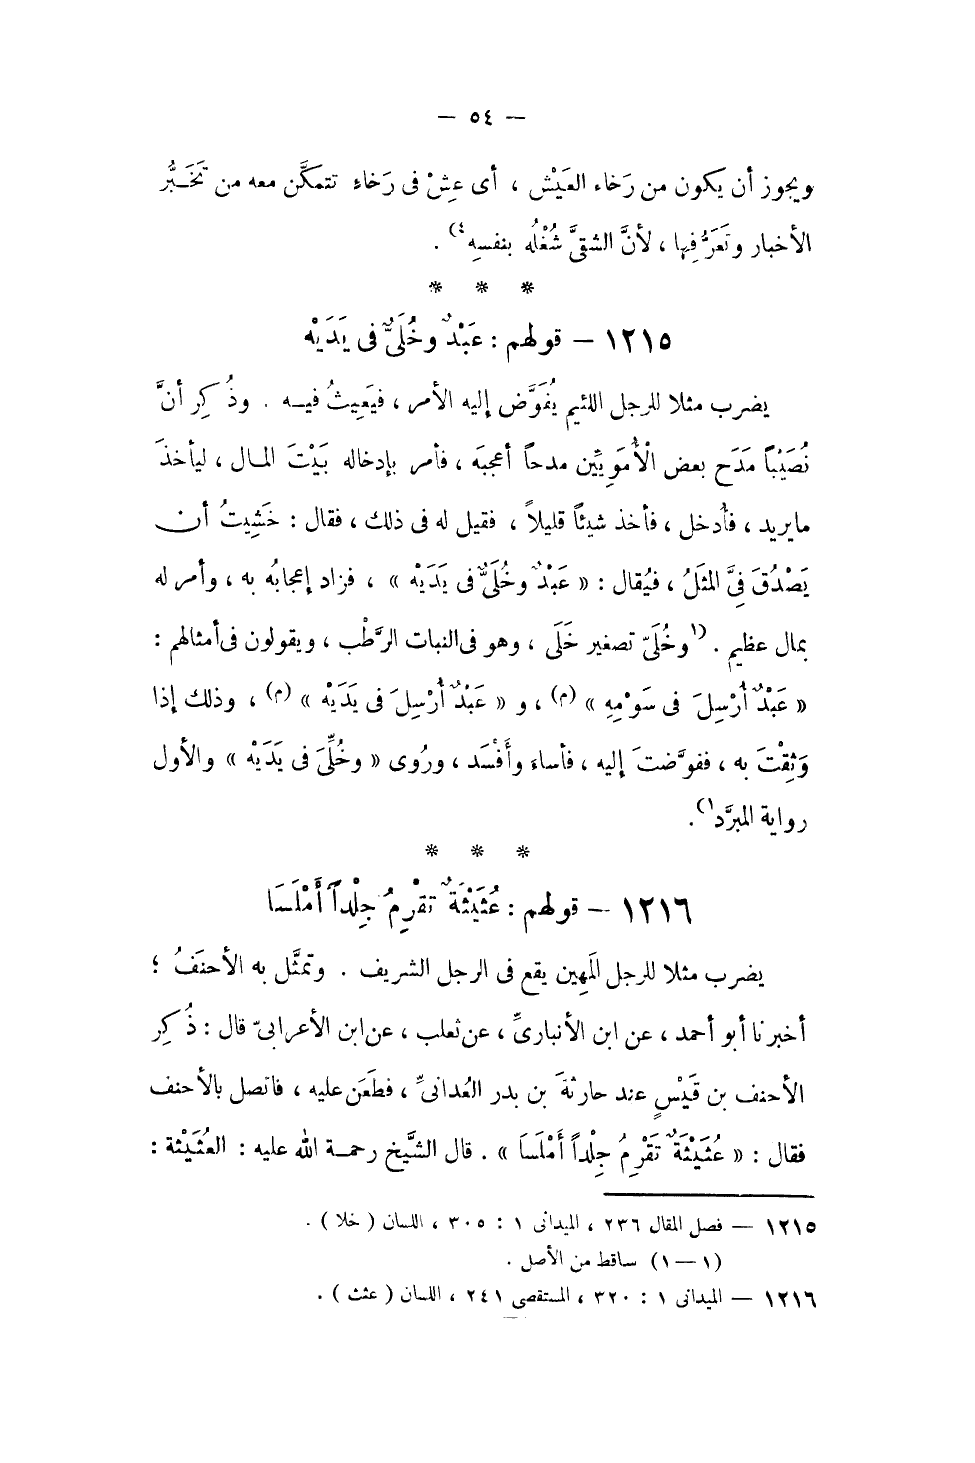 — ٥٤ —
ويجوز أن يكون من رَخاء العَيْش ، أى عِشْ فى رَخاءٍ تتمكَّن معه من تَخَبُّر
الأخبار وتَعَرُّفِها ، لأنَّ الشقىَّ شُغْلُه بنفسِه ٤) .
* * *
١٢١٥ — قولهم : عَبْدٌ وخُلَىٌّ فى يَدَيْه
يضرب مثلا للرجل اللئيم يُفَوَّض إليه الأمر ، فيَعِيثُ فيـه . وذُكِر أنَّ
نُصَيْباً مَدَح بعض الْأُمَوِيِّين مدحاً أعجبَه ، فأمر بإدخاله بَيْتَ المـال ، ليأخذَ
مايريد ، فأُدخل ، فأخذ شيئاً قليلاً ، فقيل له فى ذلك ، فقال : خَشِيتُ أن
يَصْدُقَ فِىَّ المثَلُ ، فيُقال : « عَبْدٌ وخُلَىٌّ فى يَدَيْه » ، فزاد إعجابُه به ، وأمر له
بمال عظيم . (١ وخُلَىّ تصغير خَلَى ، وهو فى النبات الرَّطْب ، ويقولون فى أمثالهم :
« عَبْدٌ أُرْسِلَ فى سَوْمِهِ » (م) ، و « عَبْدٌ أُرْسِلَ فى يَدَيْه » (م) ، وذلك إذا
وَثِقْتَ به ، ففوَّضتَ إليه ، فأساء وأَفْسَد ، ورُوى « وخُلِّىَ فى يَدَيْه » والأول
رواية المبرَّد ١) .
* * *
١٢١٦ — قولهم : عُثَيْثَةٌ تقْرِمُ جِلْداً أَمْلَسَا
يضرب مثلا للرجل المَهِين يقع فى الرجل الشريف . وتمثَّل به الأحنَفُ ؛
أخبرنا أبو أحمد ، عن ابن الأنبارىِّ ، عن ثعلب ، عن ابن الأعرابىّ قال : ذُكِر
الأحنف بن قَيْسٍ عند حارثةَ بن بدر الغُدانىِّ ، فطَعَن عليه ، فاتصل بالأحنف
فقال : « عُثَيْثَةٌ تَقْرِمُ جِلْداً أَمْلَسَا » . قال الشَّيخ رحمـة الله عليه : العُثَيْثة :
١٢١٥ — فصل المقال ٢٣٦ ، الميدانى ١ : ٣٠٥ ، اللسان ( خلا ) .
(١—١) ساقط من الأصل .
١٢١٦ — الميدانى ١ : ٣٢٠ ، المستقصى ٢٤١ ، اللسان ( عثث ) .